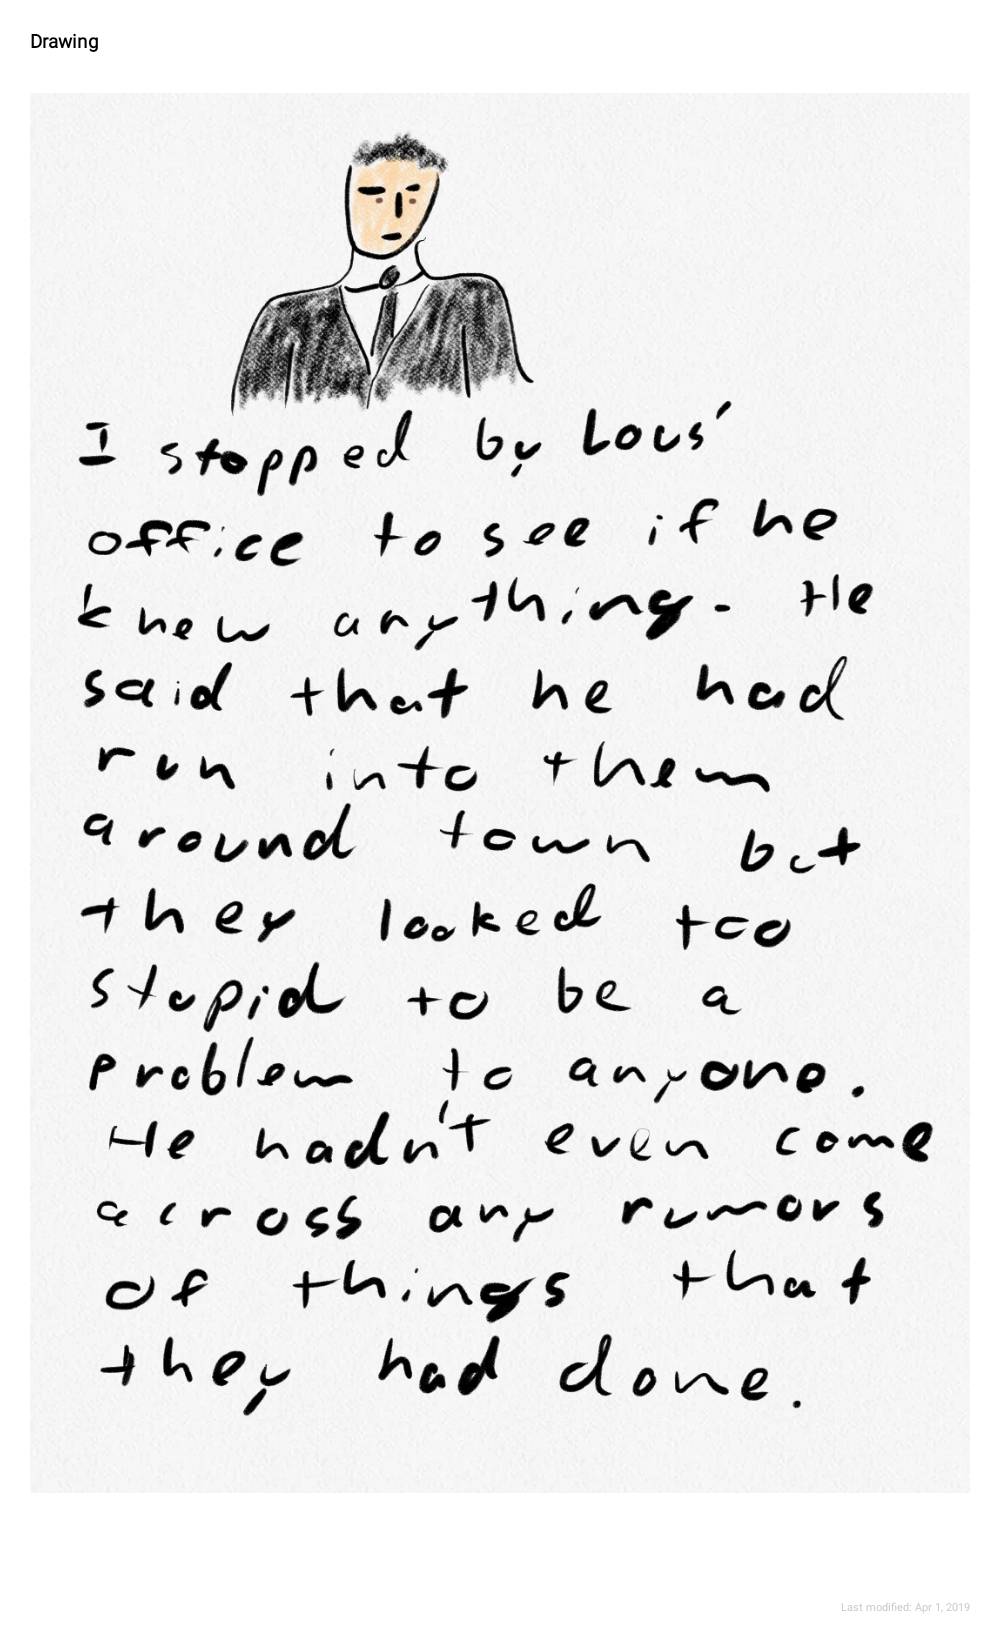 Drawing
I stopped by Lous'
office to see if he
knew anything. He
said that he had
run into them
around town but
they looked too
stupid to be a
problem to anyone.
He hadn't even come
across any rumors
of things that
they had done.
Last modified: Apr 1, 2019